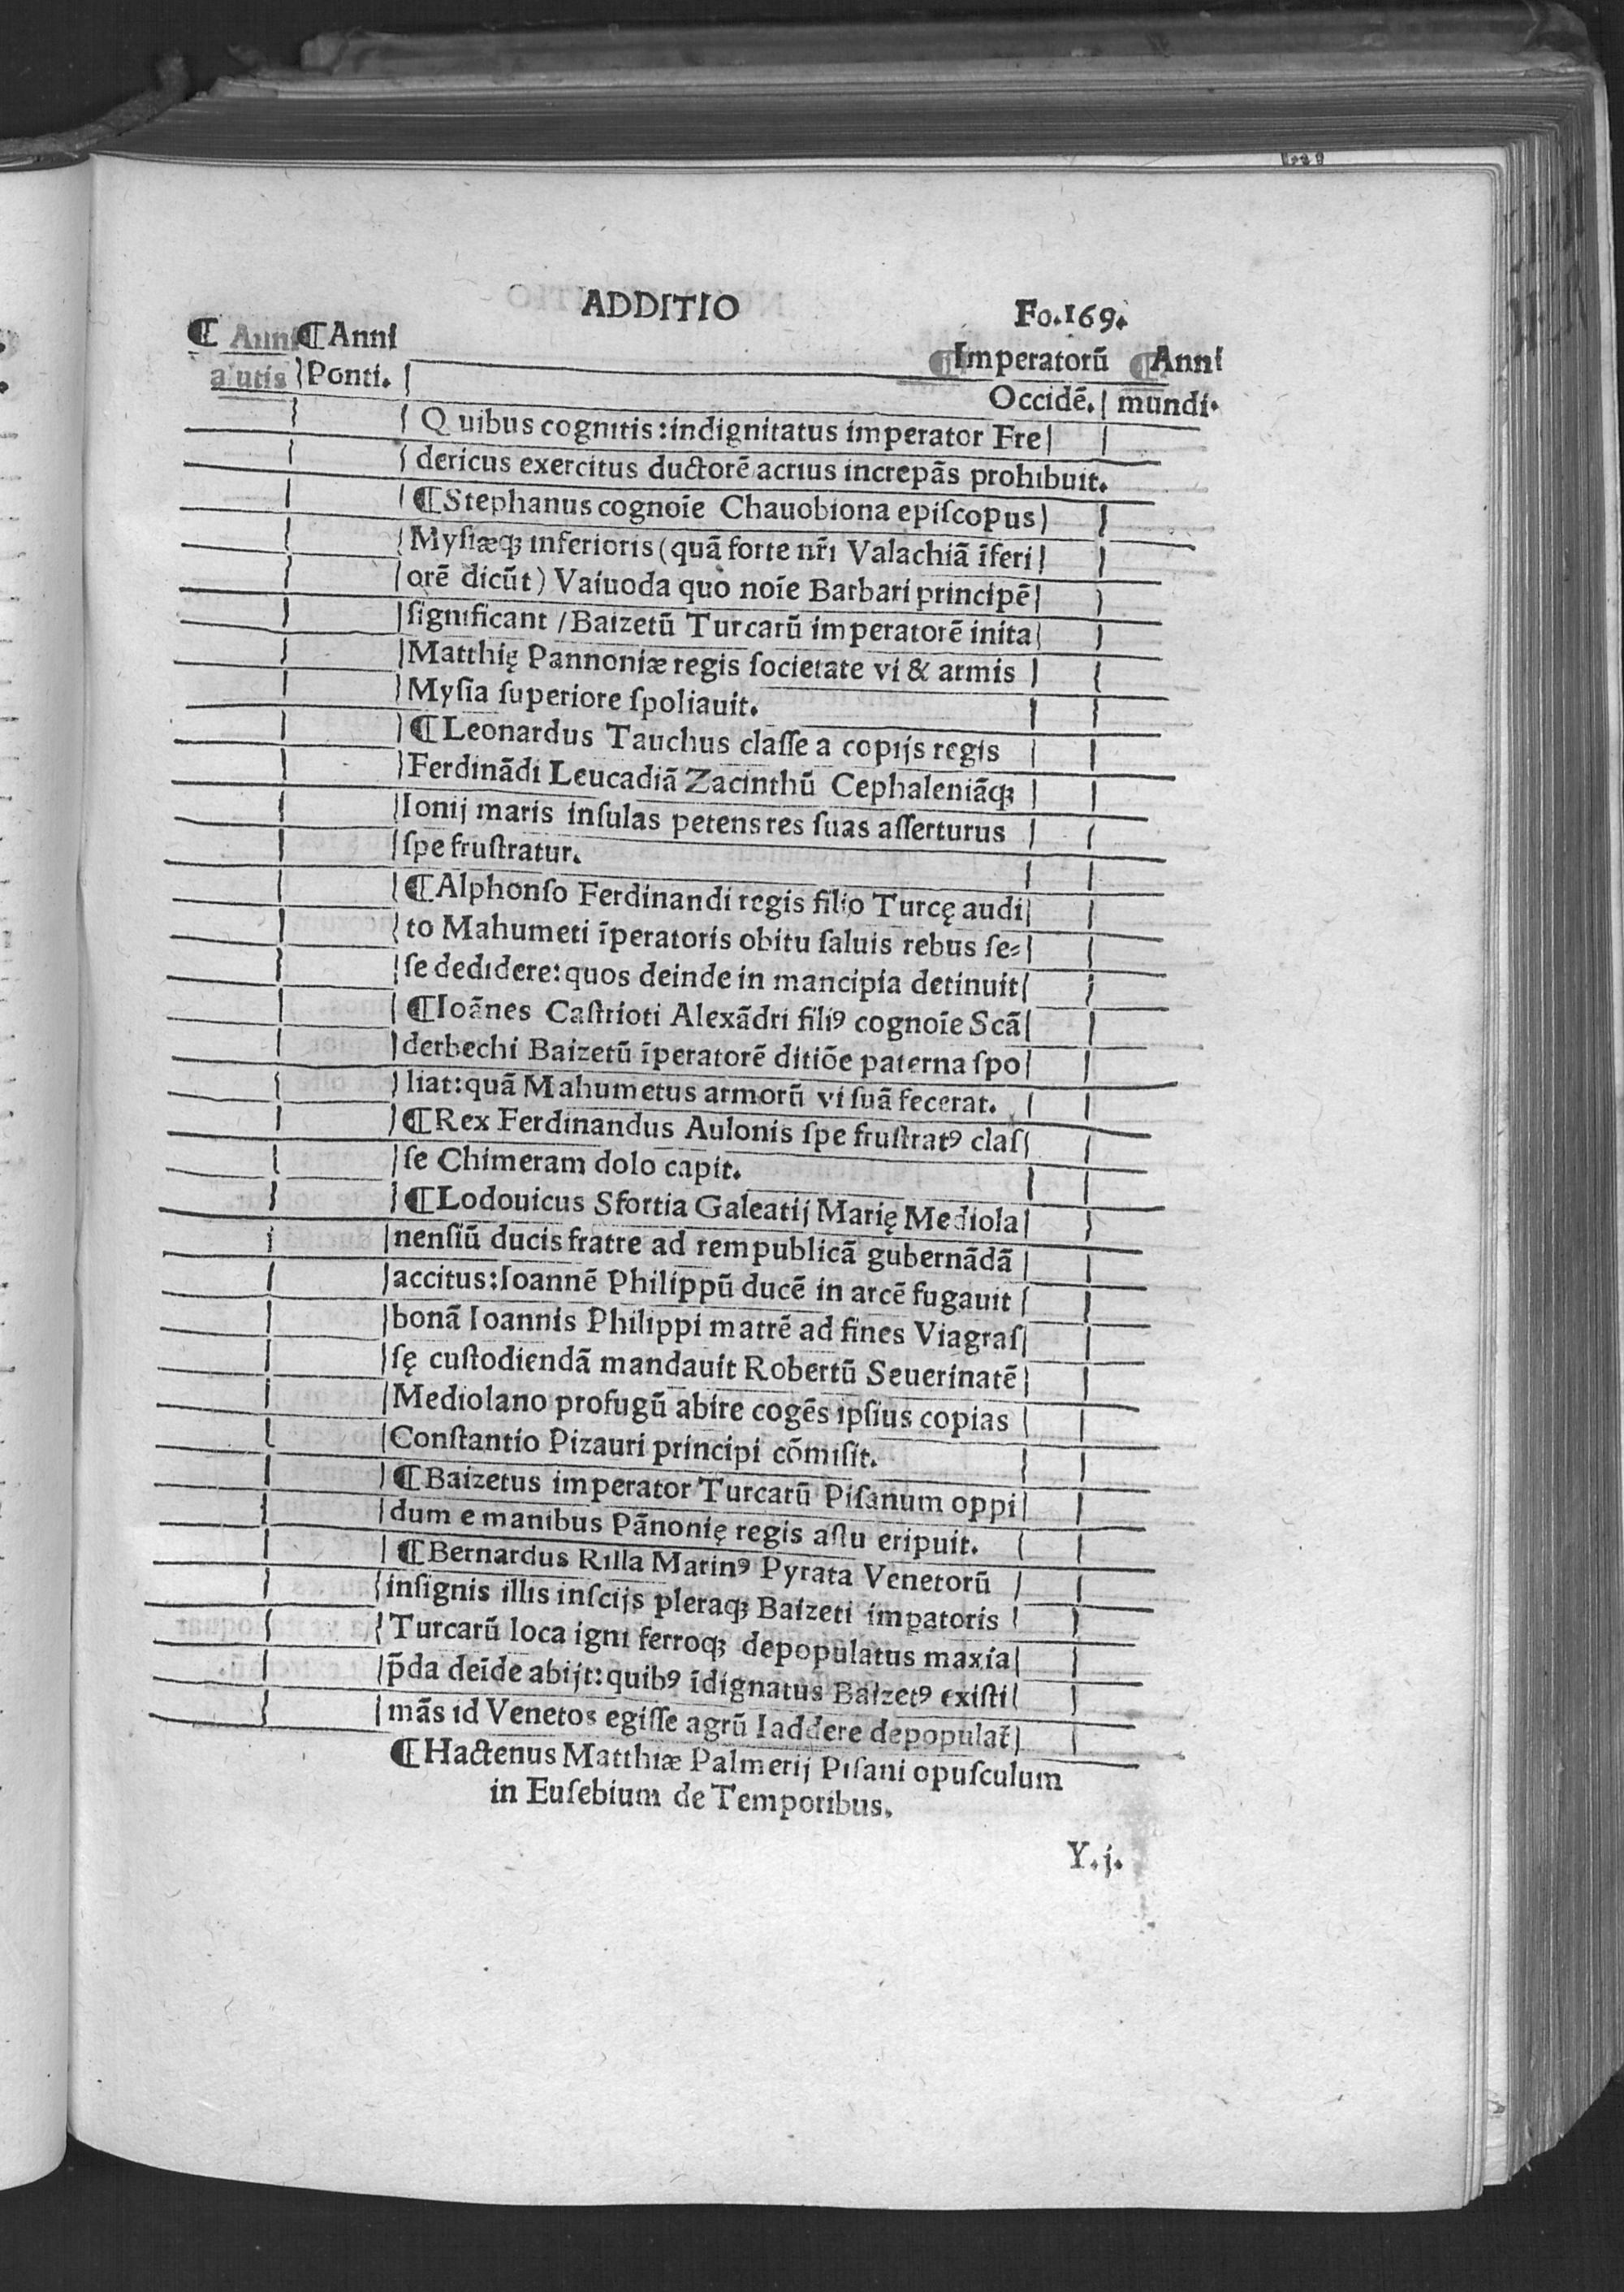 ADDITIO Fo.169.
¶ Anni ¶Anni ¶Imperatorū ¶Anni
alutis Ponti. Occidē. mundi.
Quibus cognitis:indignitatus imperator Fre
dericus exercitus ductorē acrius increpās prohibuit.
¶Stephanus cognoīe Chauobiona epiſcopus
Myſiæqꝫ inferioris (quā forte nr̄i Valachiā īferi
orē dicūt) Vaiuoda quo noīe Barbari principē
ſignificant / Baizetū Turcarū imperatorē inita
Matthię Pannoniæ regis ſocietate vi & armis
Myſia ſuperiore ſpoliauit.
¶Leonardus Tauchus claſſe a copijs regis
Ferdinādi Leucadiā Zacinthū Cephaleniāqꝫ
Ionij maris inſulas petens res ſuas aſſerturus
ſpe fruſtratur.
¶Alphonſo Ferdinandi regis filio Turcę audi
to Mahumeti īperatoris obitu ſaluis rebus ſe⸗
ſe dedidere:quos deinde in mancipia detinuit
¶Ioānes Caſtrioti Alexādri filiꝰ cognoīe Scā
derbechi Baizetū īperatorē ditiōe paterna ſpo
liat:quā Mahumetus armorū vi ſuā fecerat.
¶Rex Ferdinandus Aulonis ſpe fruſtratꝰ claſ
ſe Chimeram dolo capit.
¶Lodouicus Sfortia Galeatij Marię Mediola
nenſiū ducis fratre ad rempublicā gubernādā
accitus:Ioannē Philippū ducē in arcē fugauit
bonā Ioannis Philippi matrē ad fines Viagraſ
ſę cuſtodiendā mandauit Robertū Seuerinatē
Mediolano profugū abire cogēs ipſius copias
Conſtantio Pizauri principi cōmiſit.
¶Baizetus imperator Turcarū Piſanum oppi
dum e manibus Pānonię regis aſtu eripuit.
¶Bernardus Rilla Marinꝰ Pyrata Venetorū
inſignis illis inſcijs pleraqꝫ Baizeti imꝑatoris
Turcarū loca igni ferroqꝫ depopulatus maxīa
p̄da deīde abijt:quibꝰ īdignatus Baizetꝰ exiſti
mās id Venetos egiſſe agrū Iaddere depopulat̄
¶Hactenus Matthiæ Palmerij Piſani opuſculum
in Euſebium de Temporibus.
Y.j.